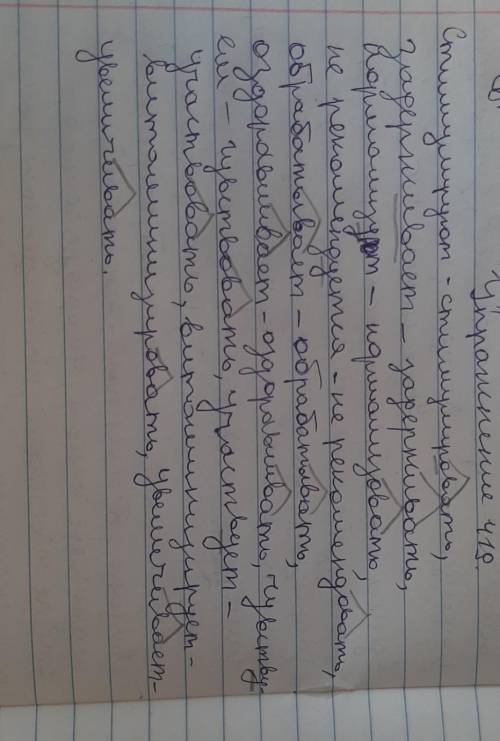 Упражнение 418.
Стимулируют - стимулировать,
задерживает - задерживать,
нормализует - нормализовать,
не рекомендуется - не рекомендовать,
обрабатывает - обрабатывать,
оздоравливает - оздоравливать, чувству-
ем - чувствовать, участвует -
участвовать, витаминизирует -
витаминизировать, увеличивает -
увеличивать.